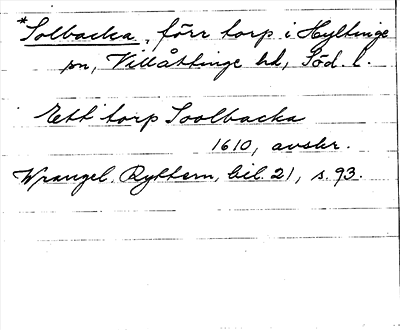 *Solbacka, förr torp i Hyltinge
sn, Villåttinge hd, Söd. l.
Ett torp Soolbacka
1610, avskr.
Wrangel. Ryttern, bil. 21, s. 93.